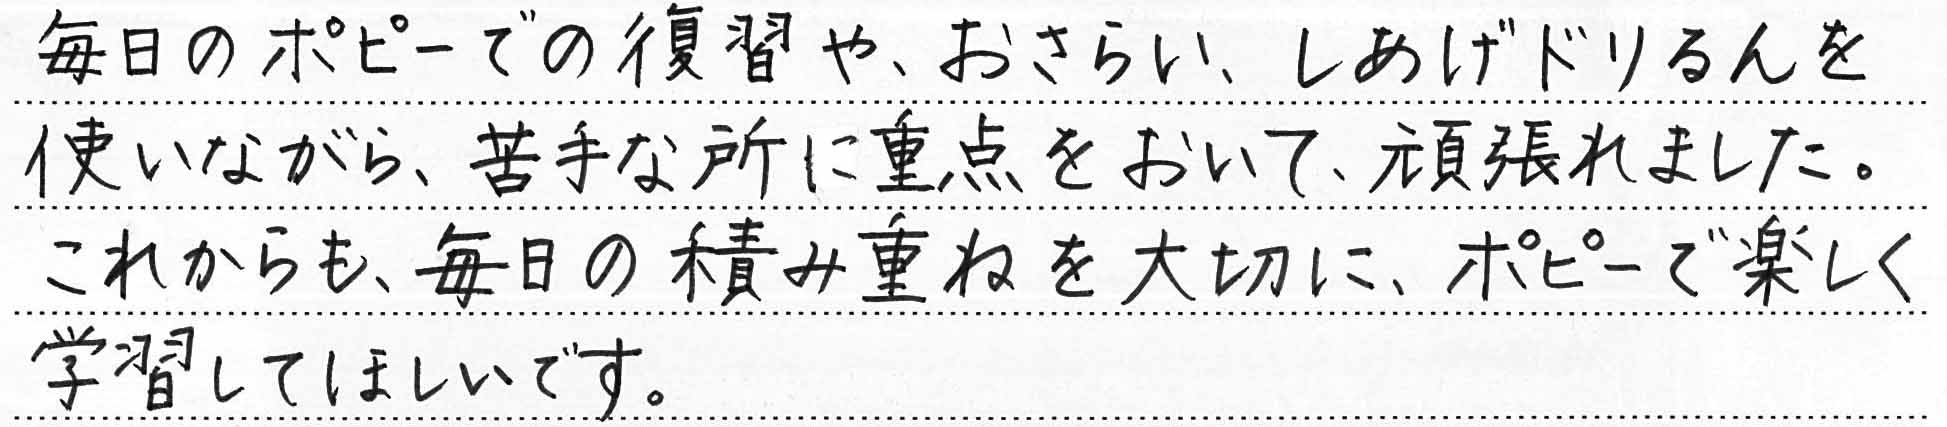 毎日のポピーでの復習や、おさらい、しあげドリるんを
使いながら、苦手な所に重点をおいて、頑張れました。
これからも、毎日の積み重ねを大切に、ポピーで楽しく
学習してほしいです。